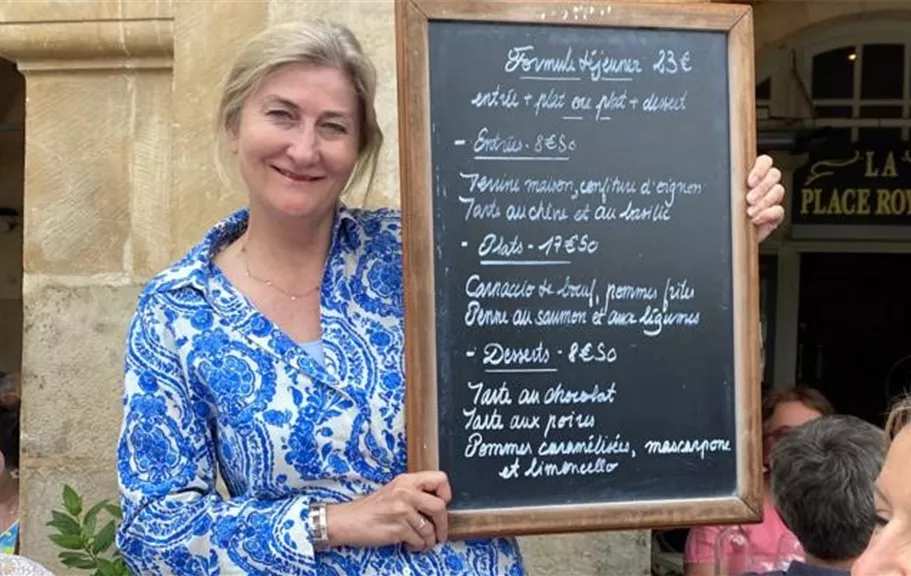 Formule déjeuner 23€
entrée + plat ou plat + dessert
- Entrées - 8€50
Terrine maison, confiture d'oignon
Tarte au chèvre et au basilic
- Plats - 17€50
Carpaccio de boeuf, pommes frites
Penne au saumon et aux légumes
- Desserts - 8€50
Tarte au chocolat
Tarte aux poires
Pommes caramélisées, mascarpone
et limoncello
LA
PLACE ROY